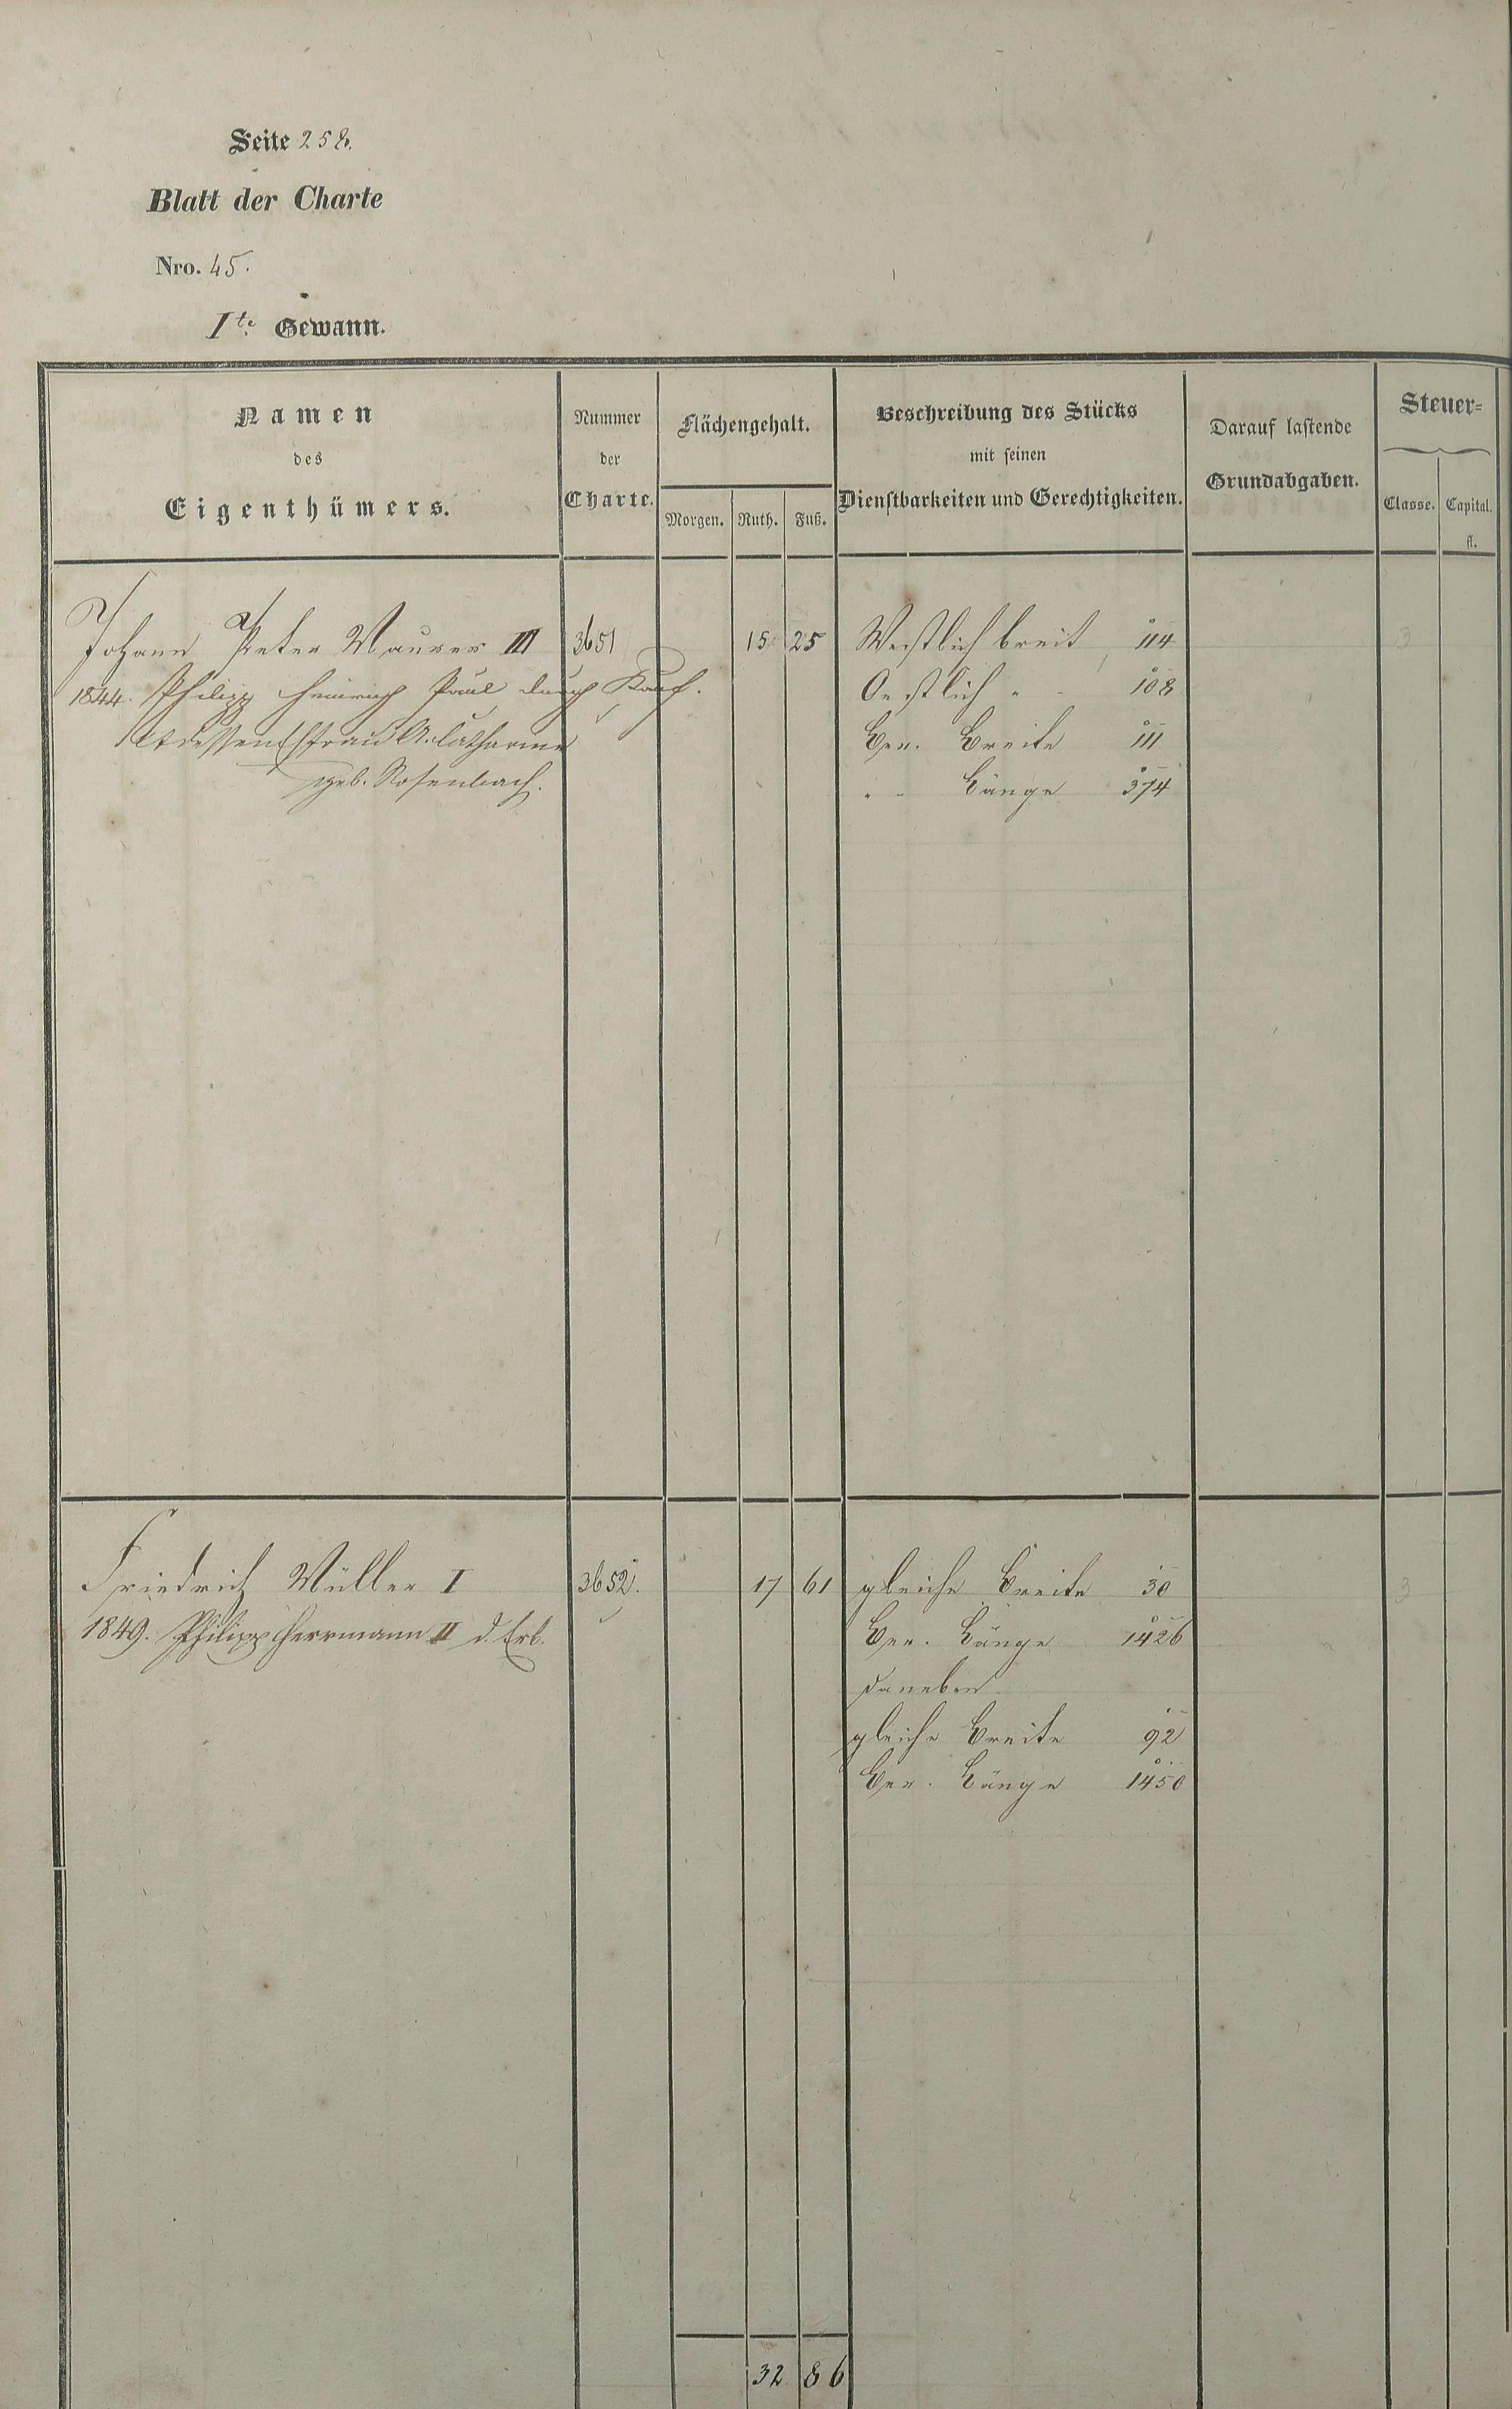 Seite 258.
Blatt der Charte
Nro. 45.
Ite Gewann.
Namen
des
Eigenthümers.
Nummer
der
Charte.
Flächengehalt.
Morgen. Ruth. Fuß.
Beschreibung des Stücks
mit seinen
Dienstbarkeiten und Gerechtigkeiten.
Darauf lastende
Grundabgaben.
Steuer=
Classe. Capital.
fl.
Johann Peter Maurer III 3651 15 25 Westlich breit 114 3
1844. Philipp Heinrich Paul durch Kauf. Oestlich " - 108
dessen Ehfrau A. Catharine Ber. Breite 111
geb. Rosenbach. " - Länge 374
Friedrich Müller I 3652. 17 61 gleiche Breite 30 3
1849. Philipp Herrmann II d. Erb. Ber. Länge 1426
daneben
gleiche Breite 92
Ber. Länge 1450
32 86